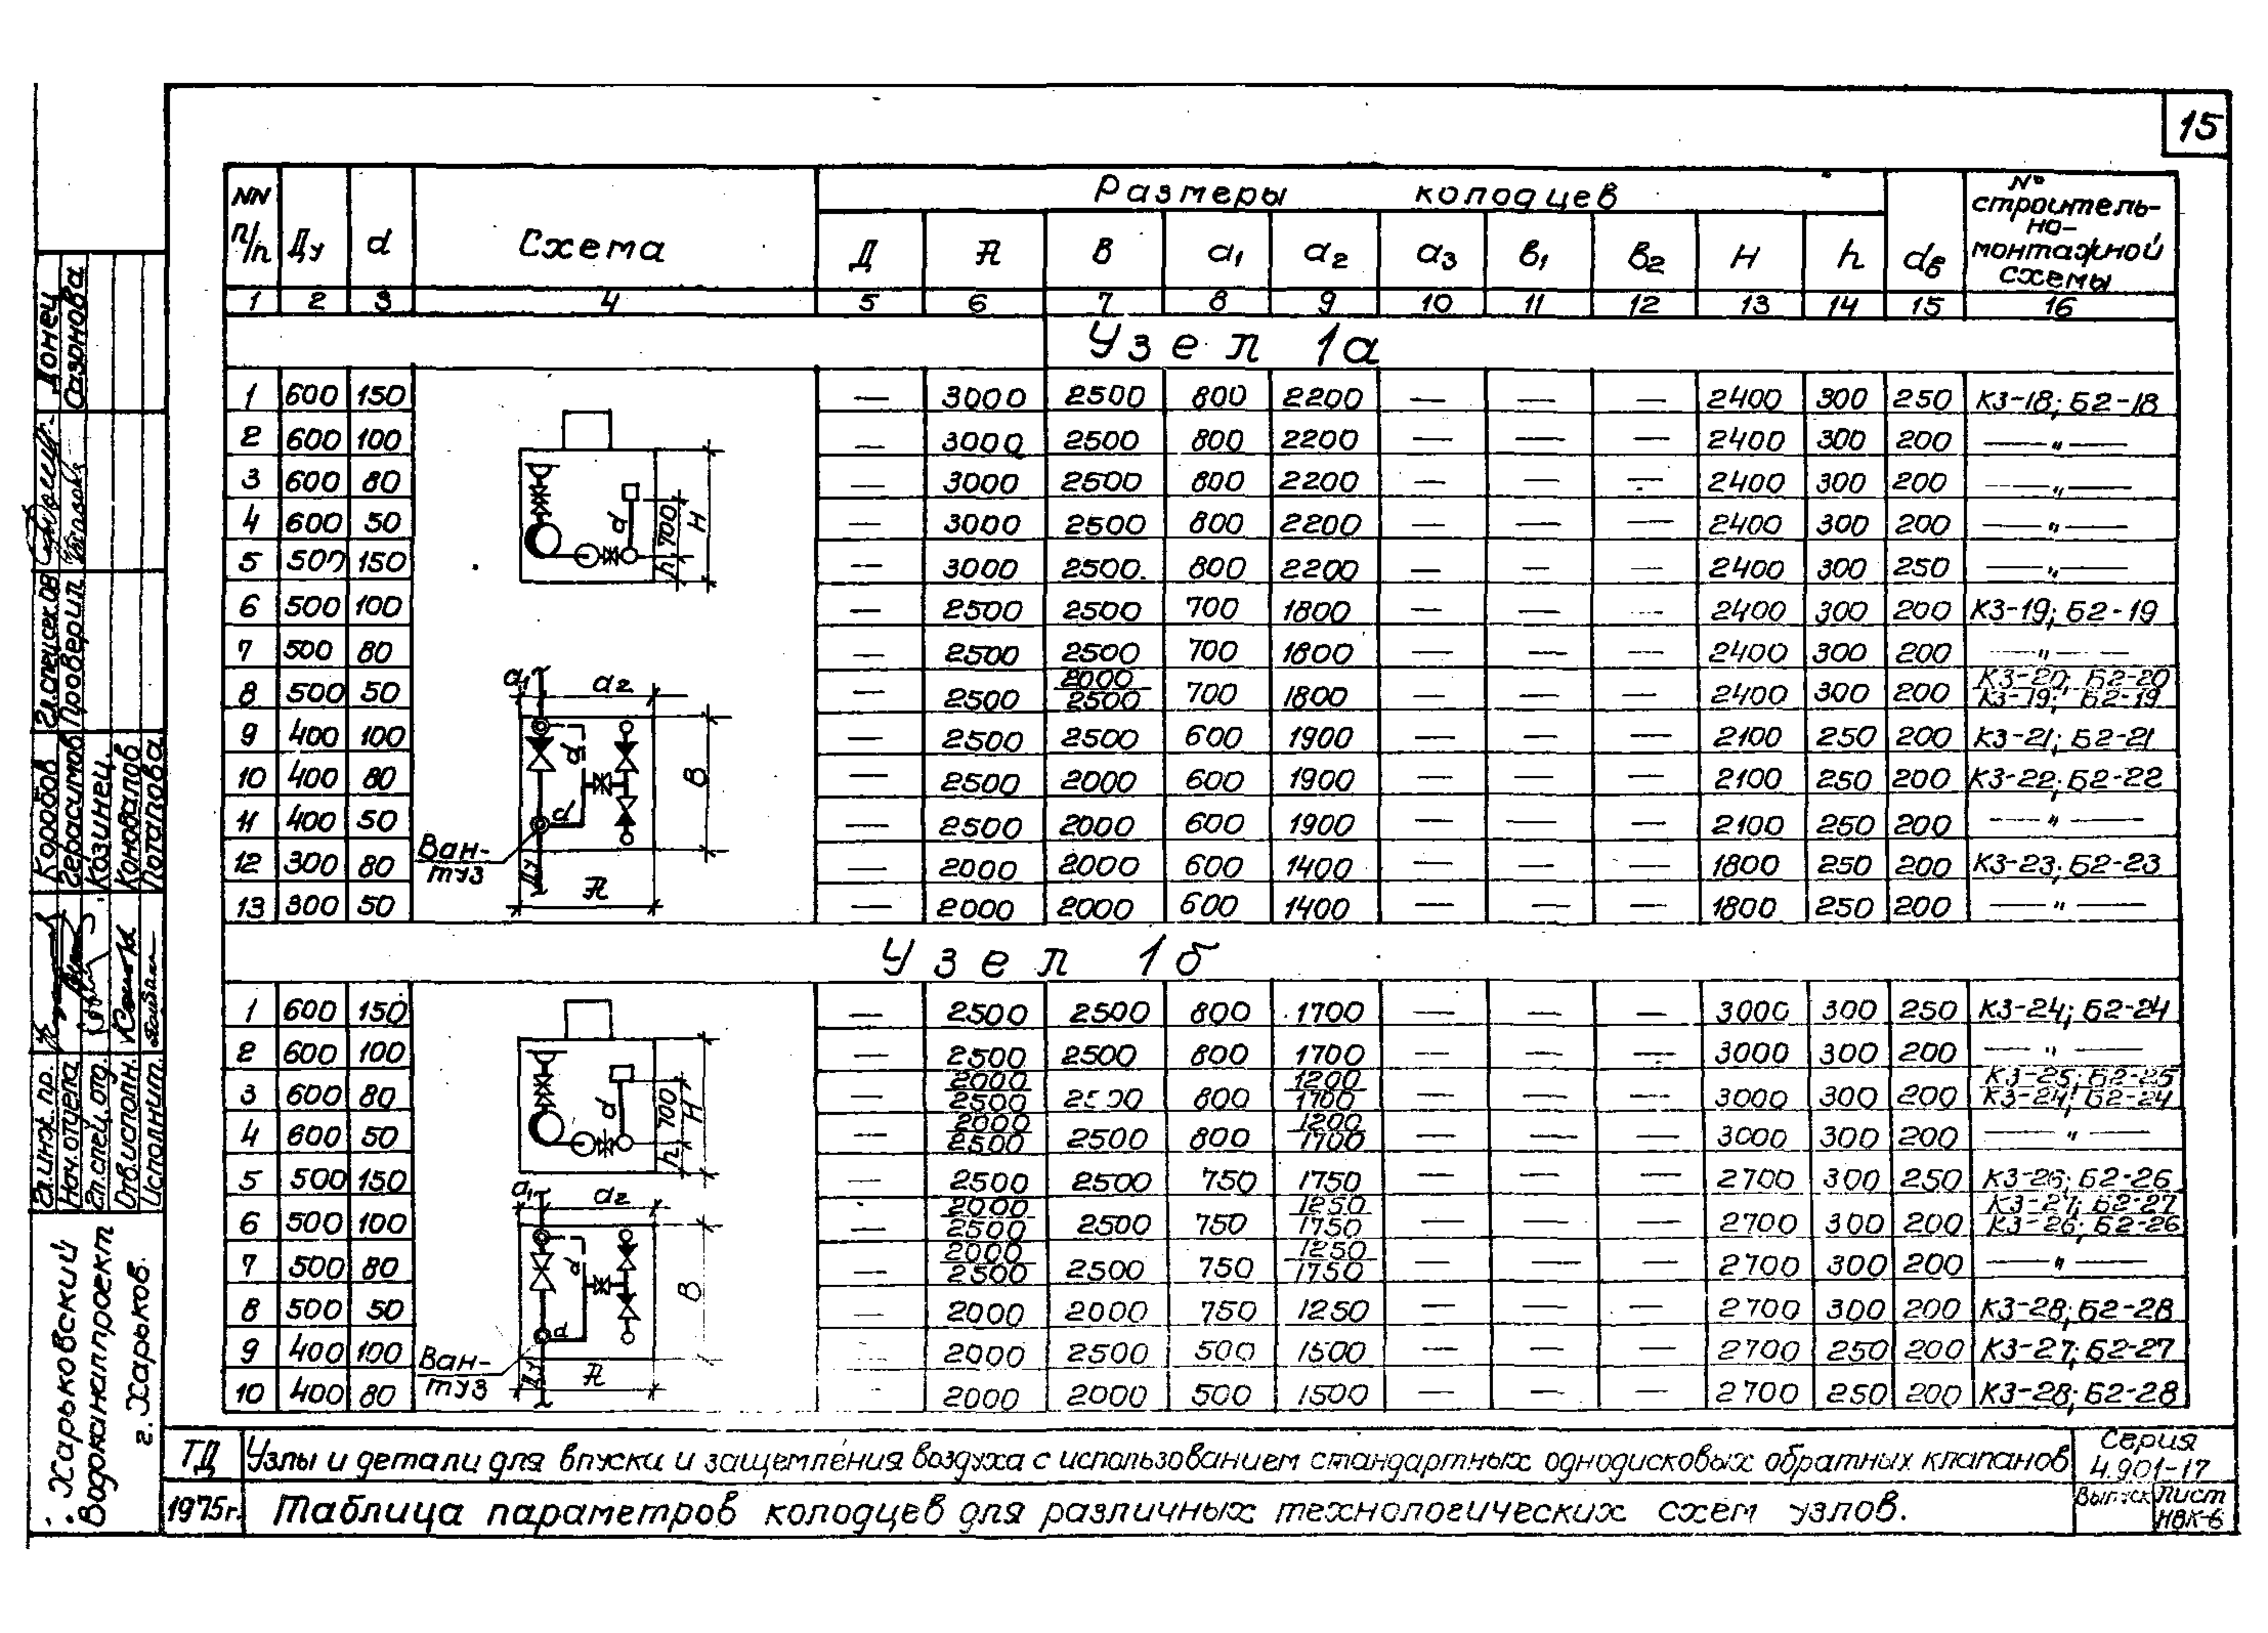 15
NN п/п Ду d Схема Размеры колодцев dв № строитель-
но-
монтажной
схемы
Д А В а1 а2 а3 в1 в2 Н h
1 2 3 4 5 6 7 8 9 10 11 12 13 14 15 16
Узел 1а
1 600 150 — 3000 2500 800 2200 — — — 2400 300 250 К3-18; Б2-18
2 600 100 — 3000 2500 800 2200 — — — 2400 300 200 —"—
3 600 80 — 3000 2500 800 2200 — — — 2400 300 200 —"—
4 600 50 — 3000 2500 800 2200 — — — 2400 300 200 —"—
5 500 150 — 3000 2500 800 2200 — — — 2400 300 250 —"—
6 500 100 — 2500 2500 700 1800 — — — 2400 300 200 К3-19; Б2-19
7 500 80 — 2500 2500 700 1800 — — — 2400 300 200 —"—
8 500 50 — 2500 2000/2500 700 1800 — — — 2400 300 200 К3-20; Б2-20 / К3-19; Б2-19
9 400 100 — 2500 2500 600 1900 — — — 2100 250 200 К3-21; Б2-21
10 400 80 — 2500 2000 600 1900 — — — 2100 250 200 К3-22; Б2-22
11 400 50 — 2500 2000 600 1900 — — — 2100 250 200 —"—
12 300 80 — 2000 2000 600 1400 — — — 1800 250 200 К3-23; Б2-23
13 300 50 — 2000 2000 600 1400 — — — 1800 250 200 —"—
d h 700 Н
а1 а2
d
В
d
Ван-
туз
Ду
А
Узел 1б
1 600 150 — 2500 2500 800 1700 — — — 3000 300 250 К3-24; Б2-24
2 600 100 — 2500 2500 800 1700 — — — 3000 300 200 —"—
3 600 80 — 2000/2500 2500 800 1200/1700 — — — 3000 300 200 К3-25; Б2-25 / К3-24; Б2-24
4 600 50 — 2000/2500 2500 800 1200/1700 — — — 3000 300 200 —"—
5 500 150 — 2500 2500 750 1750 — — — 2700 300 250 К3-26; Б2-26
6 500 100 — 2000/2500 2500 750 1250/1750 — — — 2700 300 200 К3-27; Б2-27 / К3-26; Б2-26
7 500 80 — 2000/2500 2500 750 1250/1750 — — — 2700 300 200 —"—
8 500 50 — 2000 2000 750 1250 — — — 2700 300 200 К3-28; Б2-28
9 400 100 — 2000 2500 500 1500 — — — 2700 250 200 К3-27; Б2-27
10 400 80 — 2000 2000 500 1500 — — — 2700 250 200 К3-28; Б2-28
d h 700 Н
а1 а2
d
В
d
Ван-
туз
Ду
А
ТД Узлы и детали для впуска и защемления воздуха с использованием стандартных однодисковых обратных клапанов Серия
4.901-17
1975г. Таблица параметров колодцев для различных технологических схем узлов. Выпуск Лист
НВК-6
Харьковский
Водоканалпроект
г. Харьков.
Гл.инж.пр. Коробов Гл.спец.сек.ОВ Донец
Нач.отдела Герасимов Проверил Сазонова
Гл.спец.отд. Козинец
Отв.исполн. Коновалов
Исполнит. Потапова